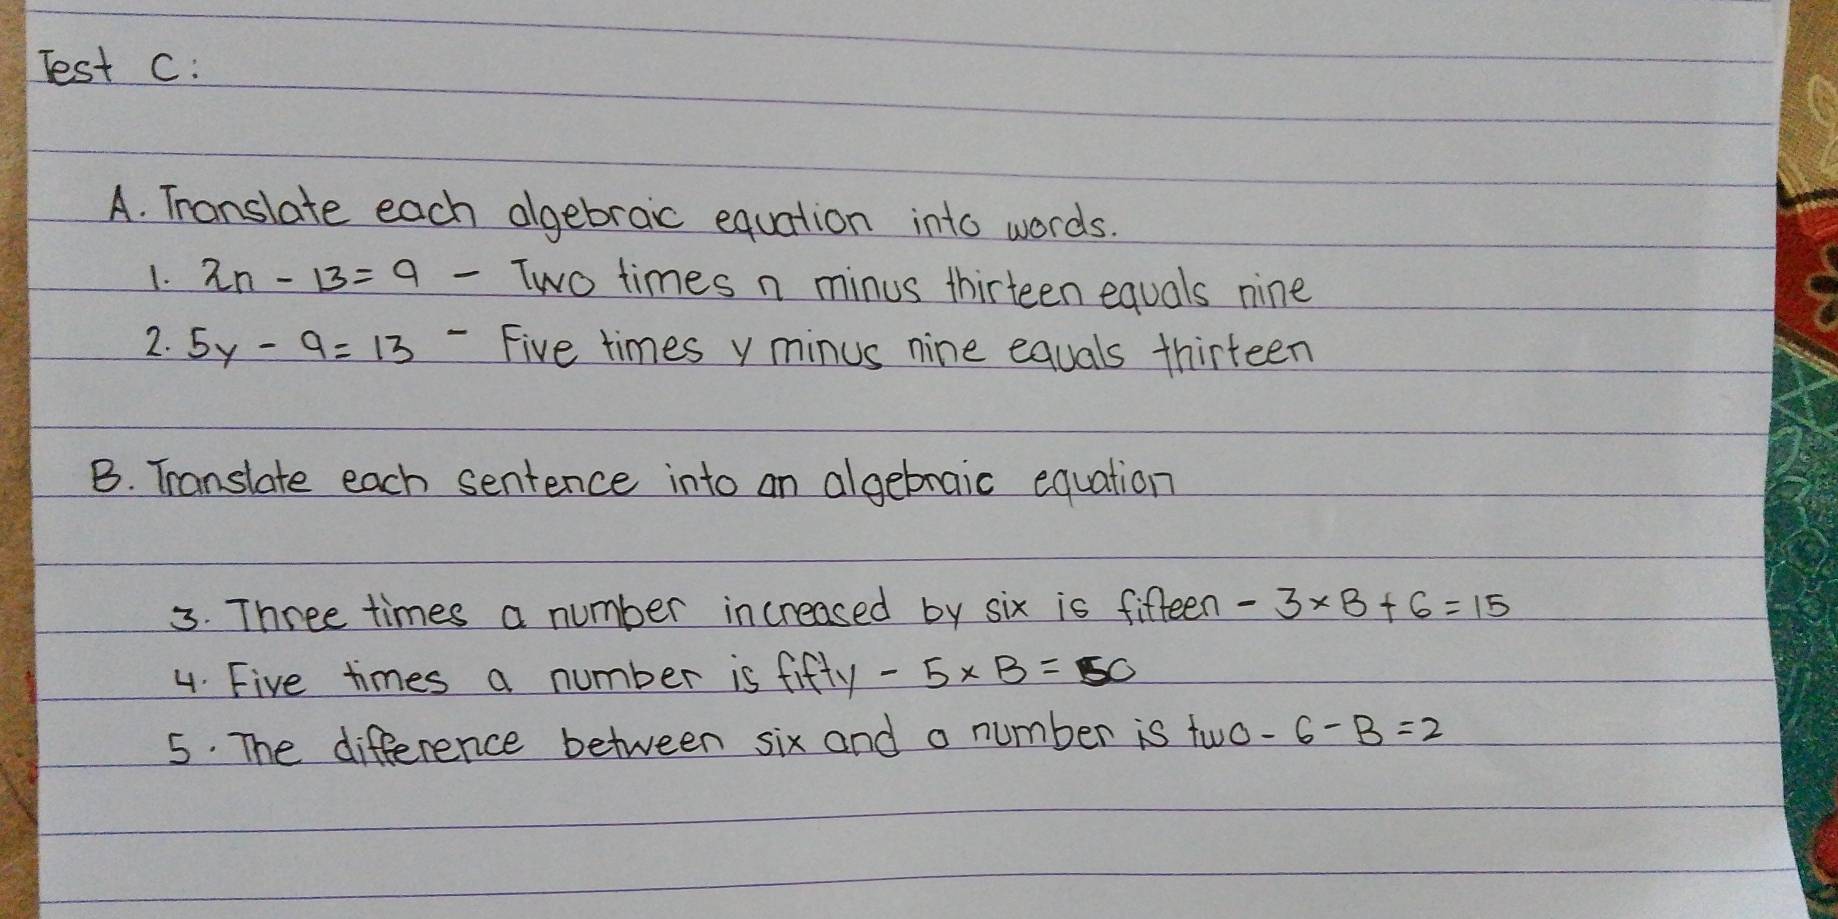 Test C:
A. Translate each algebraic equation into words.
1. 2n - 13 = 9 - Two times n minus thirteen equals nine
2. 5y - 9 = 13 - Five times y minus nine equals thirteen
B. Translate each sentence into an algebraic equation
3. Three times a number increased by six is fifteen - 3 × B + 6 = 15
4. Five times a number is fifty - 5 × B = 50
5. The difference between six and a number is two - 6 - B = 2